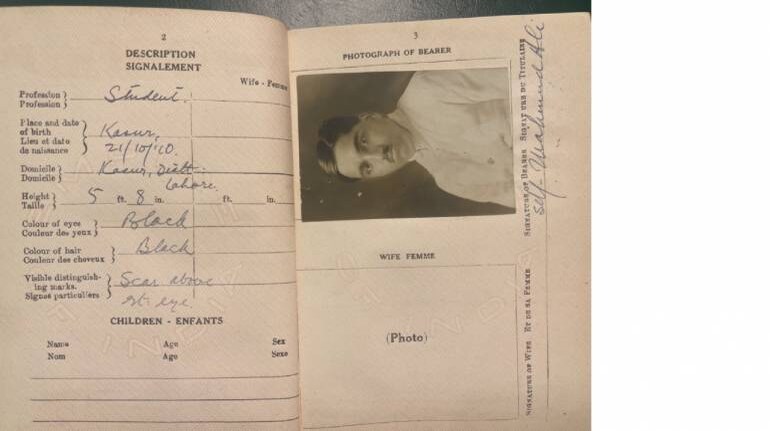 2
DESCRIPTION
SIGNALEMENT
Wife - Femme
Profession } Student.
Profession }
Place and date
of birth } Kasur,
Lieu et date 21/10/'10.
de naissance
Domicile } Kasur, Distt:
Domicile } Lahore.
Height } 5 ft. 8 in. ft. in.
Taille }
Colour of eyes } Black
Couleur des yeux }
Colour of hair } Black
Couleur des cheveux }
Visible distinguish- } Scar above
ing marks.
Signes particuliers } rt. eye.
CHILDREN - ENFANTS
Name Age Sex
Nom Age Sexe
3
PHOTOGRAPH OF BEARER
WIFE FEMME
(Photo)
SIGNATURE OF BEARER SIGNATURE DU TITULAIRE
self - Mahmud Ali
SIGNATURE OF WIFE ET DE SA FEMME